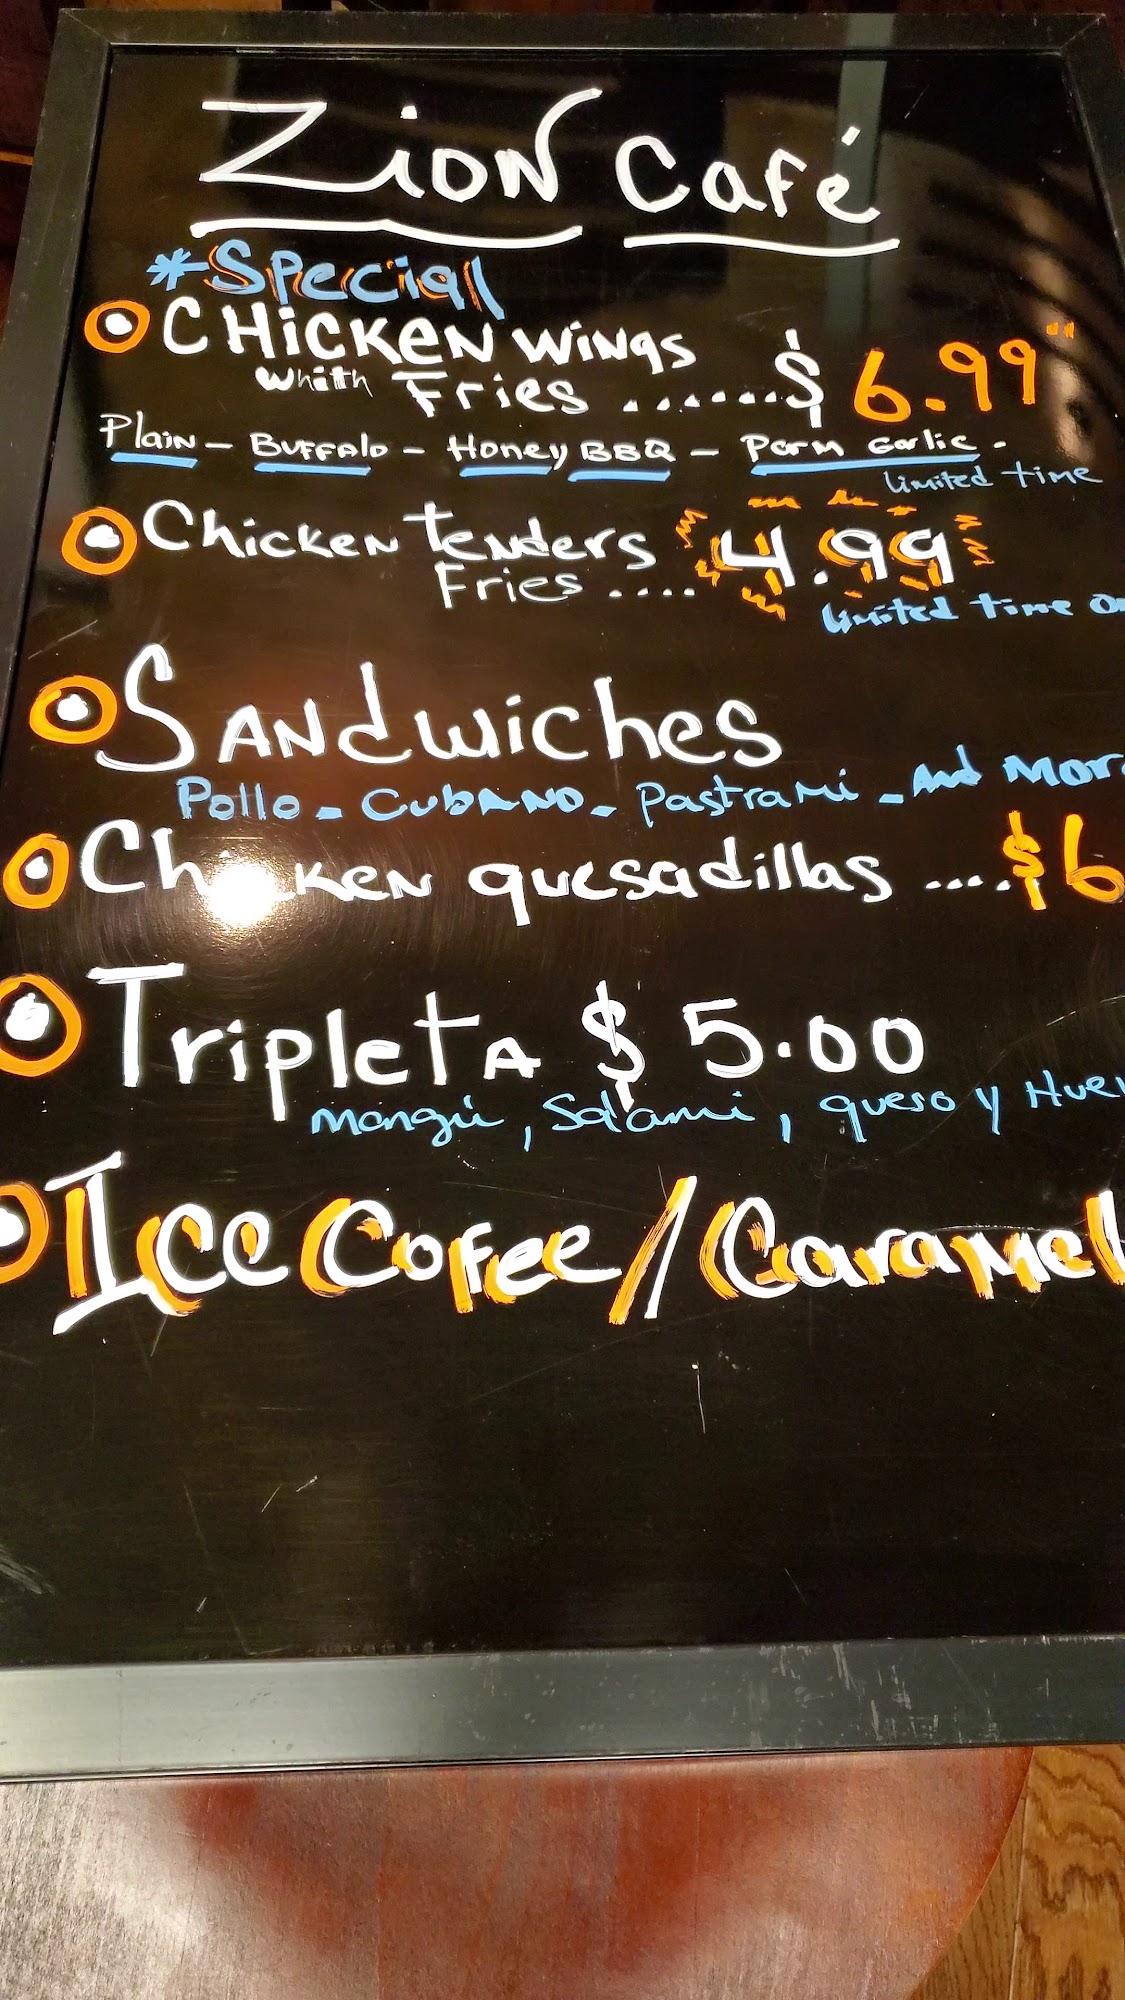 Zion Café
*Special
CHicKeN wiNgs
whith Fries .......$ 6.99"
Plain - Buffalo - Honey BBQ - Parm Garlic -
limited time
Chicken tenders 4.99
Fries ....
limited time
Sandwiches
Pollo - Cubano - Pastrami - and
Chicken quesadillas ....$6
Tripleta $ 5.00
Mangú, Salami, queso y
Ice Cofee / Caramel